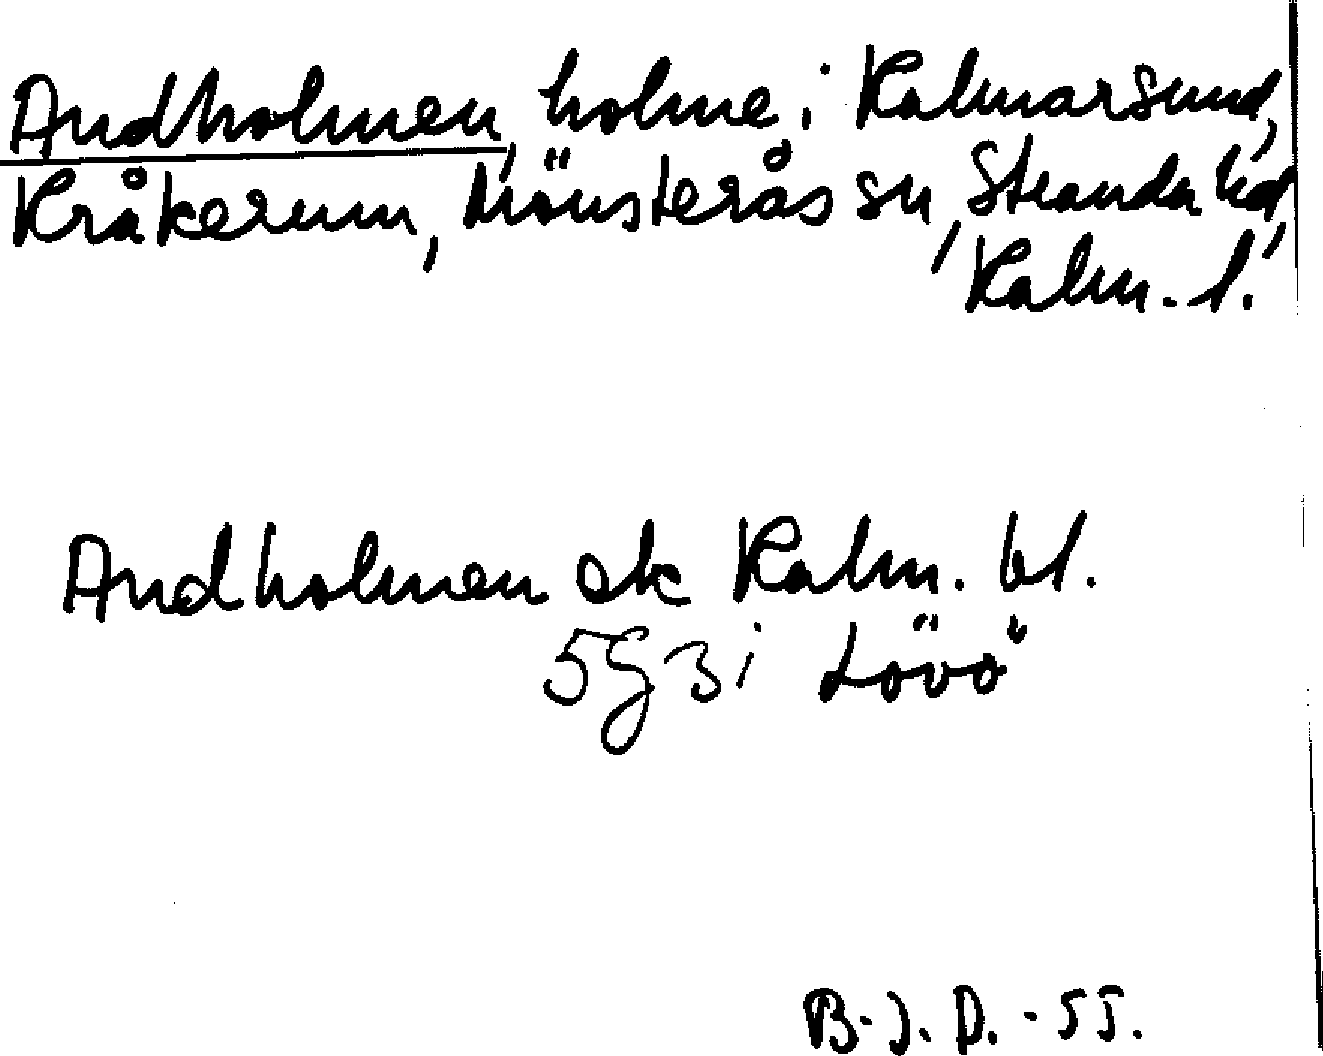 Andholmen, holme i Kalmarsund,
Kråkerum, Mönsterås sn, Stranda hd,
Kalm. l.
Andholmen ek Kalm. bl.
5g3i Lövö
B-J. D. -55.